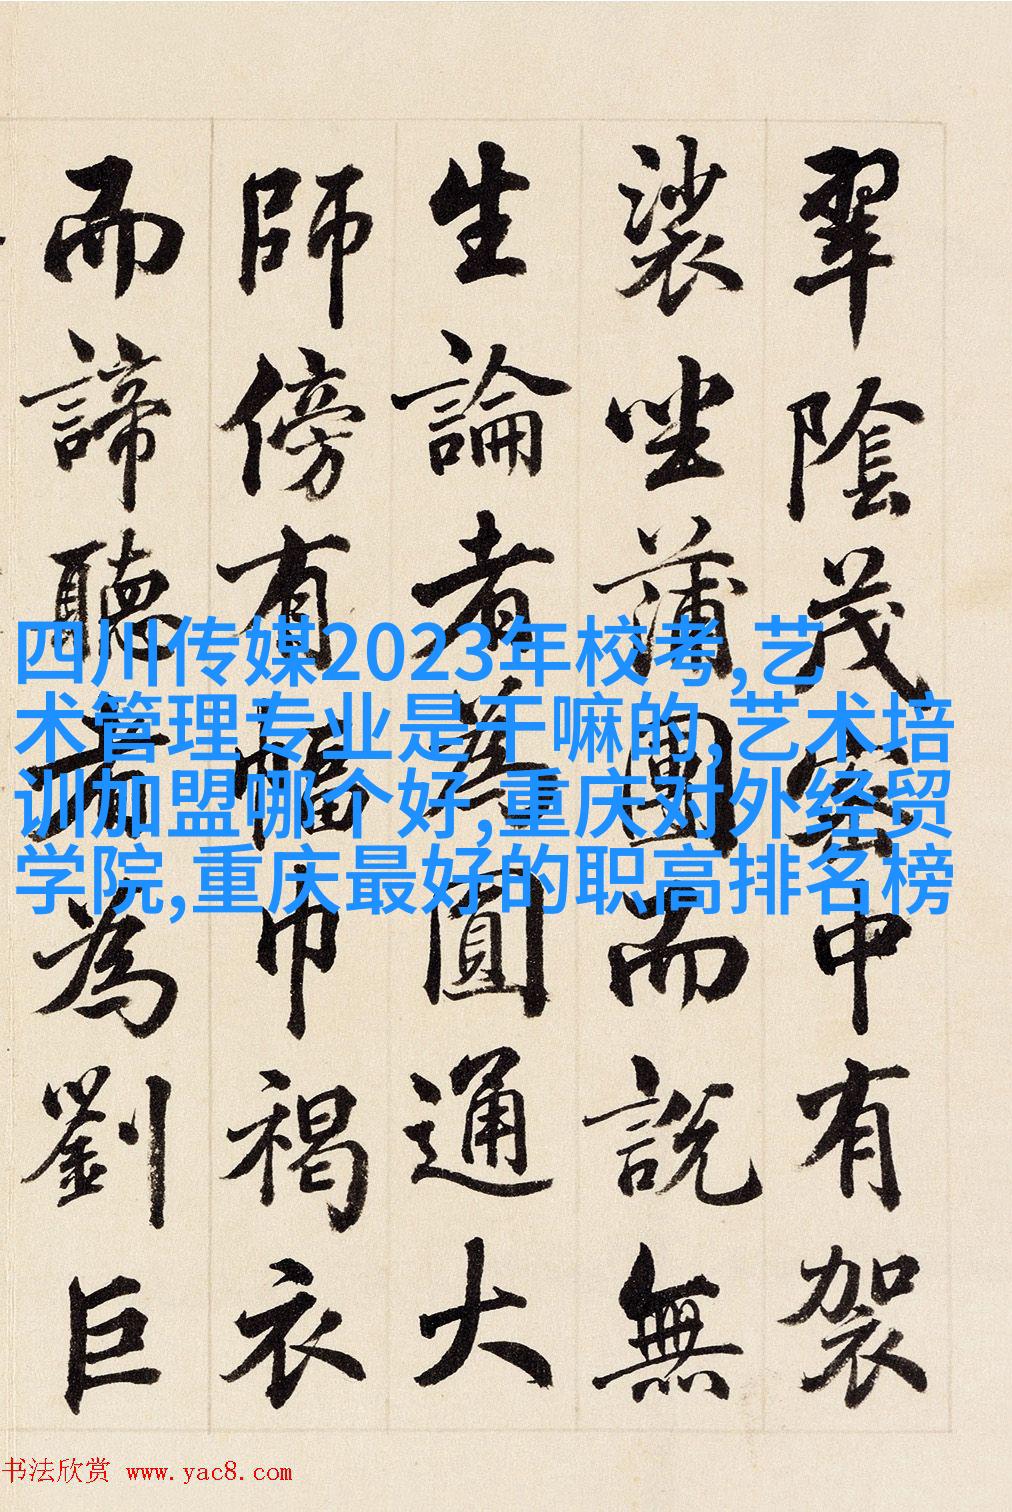 翠陰茂密中有袈
裟坐蒲團而說無
生論者為圓通大
師傍有幅巾褐衣
而諦聽者為劉巨
四川传媒2023年校考,艺
术管理专业是干嘛的,艺术培
训加盟哪个好,重庆对外经贸
学院,重庆最好的职高排名榜
书法欣赏 www.yac8.com